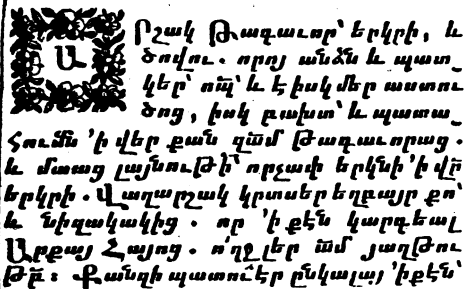 Արշակ Թագաւոր՝ երկրի, և
ծովու. որոյ անձն և պատ֊
կեր՝ ո՛պ՝ և է իսկ մեր աստու
ծոց, իսկ բախտ՝ և պատա֊
հումն ՚ի վեր քան զա՟մ Թագաւորաց.
և մտաց լայնութի՝ որչափ երկնի ՚ի վր
երկրի. Վաղարշակ կրտսեր եղբայր քո՝
և նիզակակից. որ ՚ի քէն կարգեալ
Արքայ Հայոց. ո՛ղջ լեր ա՟մ յաղթու
թբ՟: Քանզի պատուէր ընկալայ ՚ի քէն՝